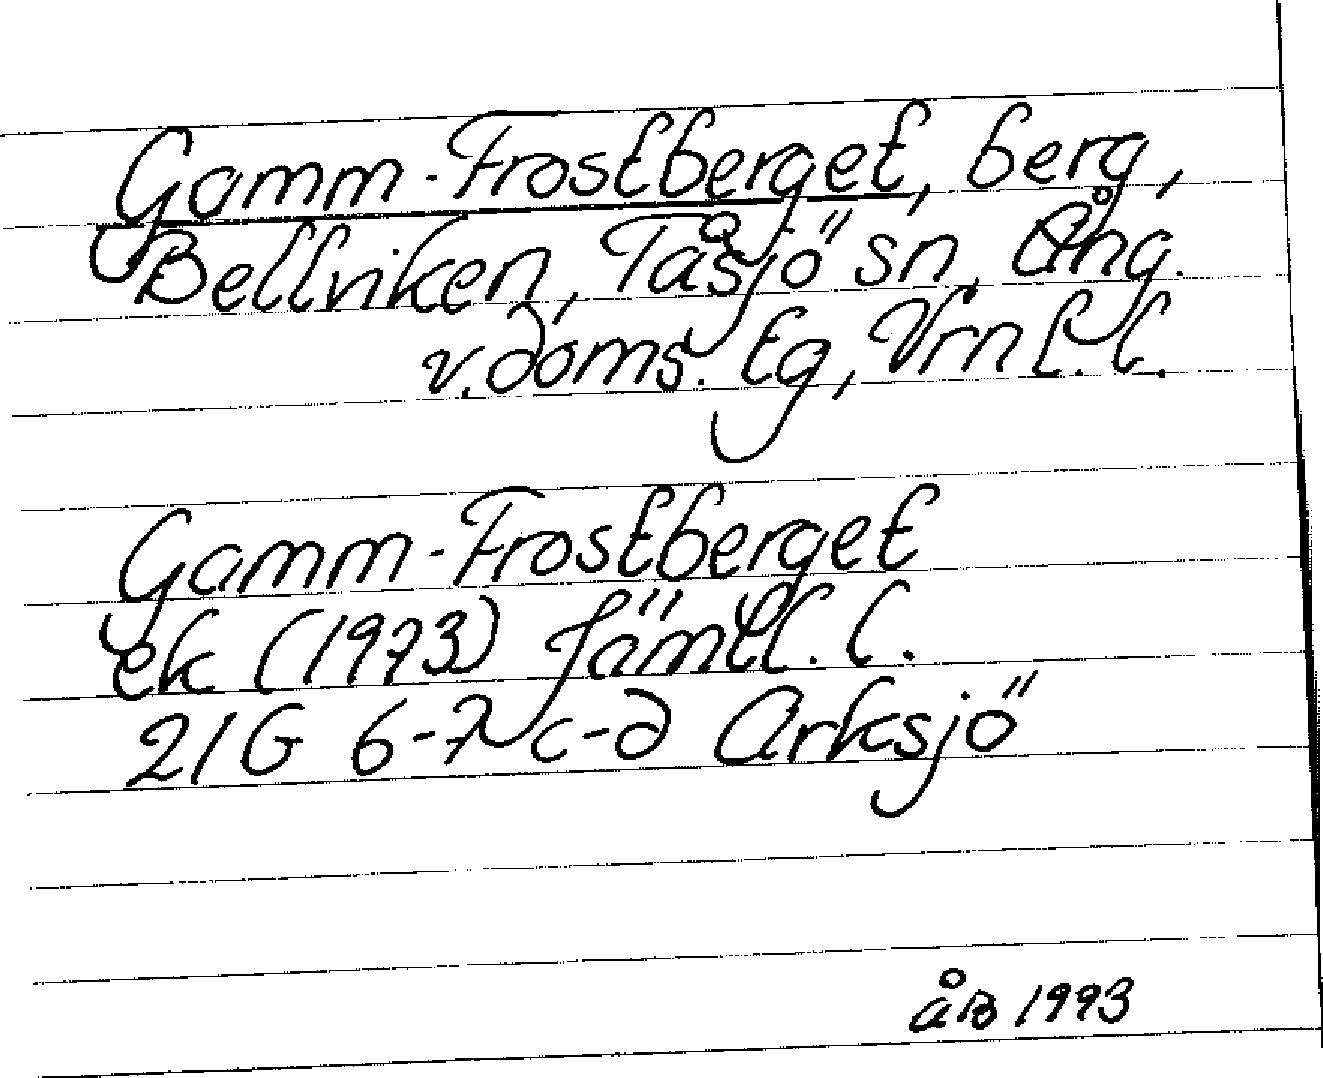 Gamm-Frostberget, berg,
Bellviken, Tåsjö sn, Ång.
v. doms. tg, Vrnl.l.
Gamm-Frostberget
ek (1973) Jämtl. l.
21G 6-7 c-d Arksjö
åB 1993